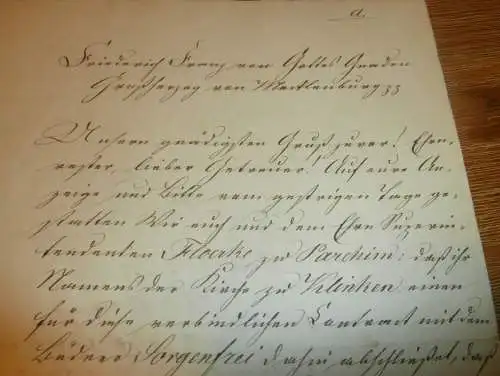 a.
Friederich Franz von Gottes Gnaden
Großherzog von Mecklenburg
Unsern gnädigsten Gruß zuvor! Ehren-
vester, lieber Getreuer! Auf eure An-
zeige und Bitte vom gestrigen Tage ge-
statten Wir euch und dem Ehrn Superin-
tendenten Floerke zu Parchim: daß ihr
Namens der Kirche zu Klinken einen
für diese verbindlichen Contract mit dem
Büdner Sorgenfrei dahin abschließet, daß